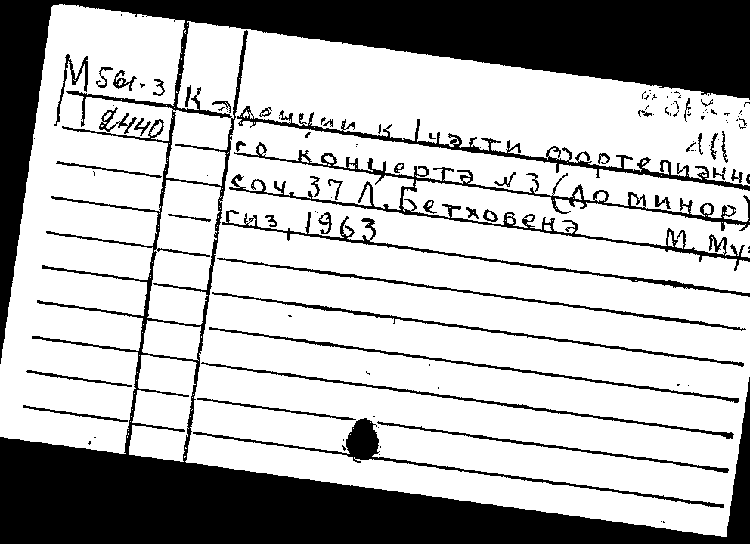 М 561-3
2440
Каденции к I части фортепианно
го концерта №3 (до минор)
соч. 37 Л. Бетховена М., Муз
гиз, 1963